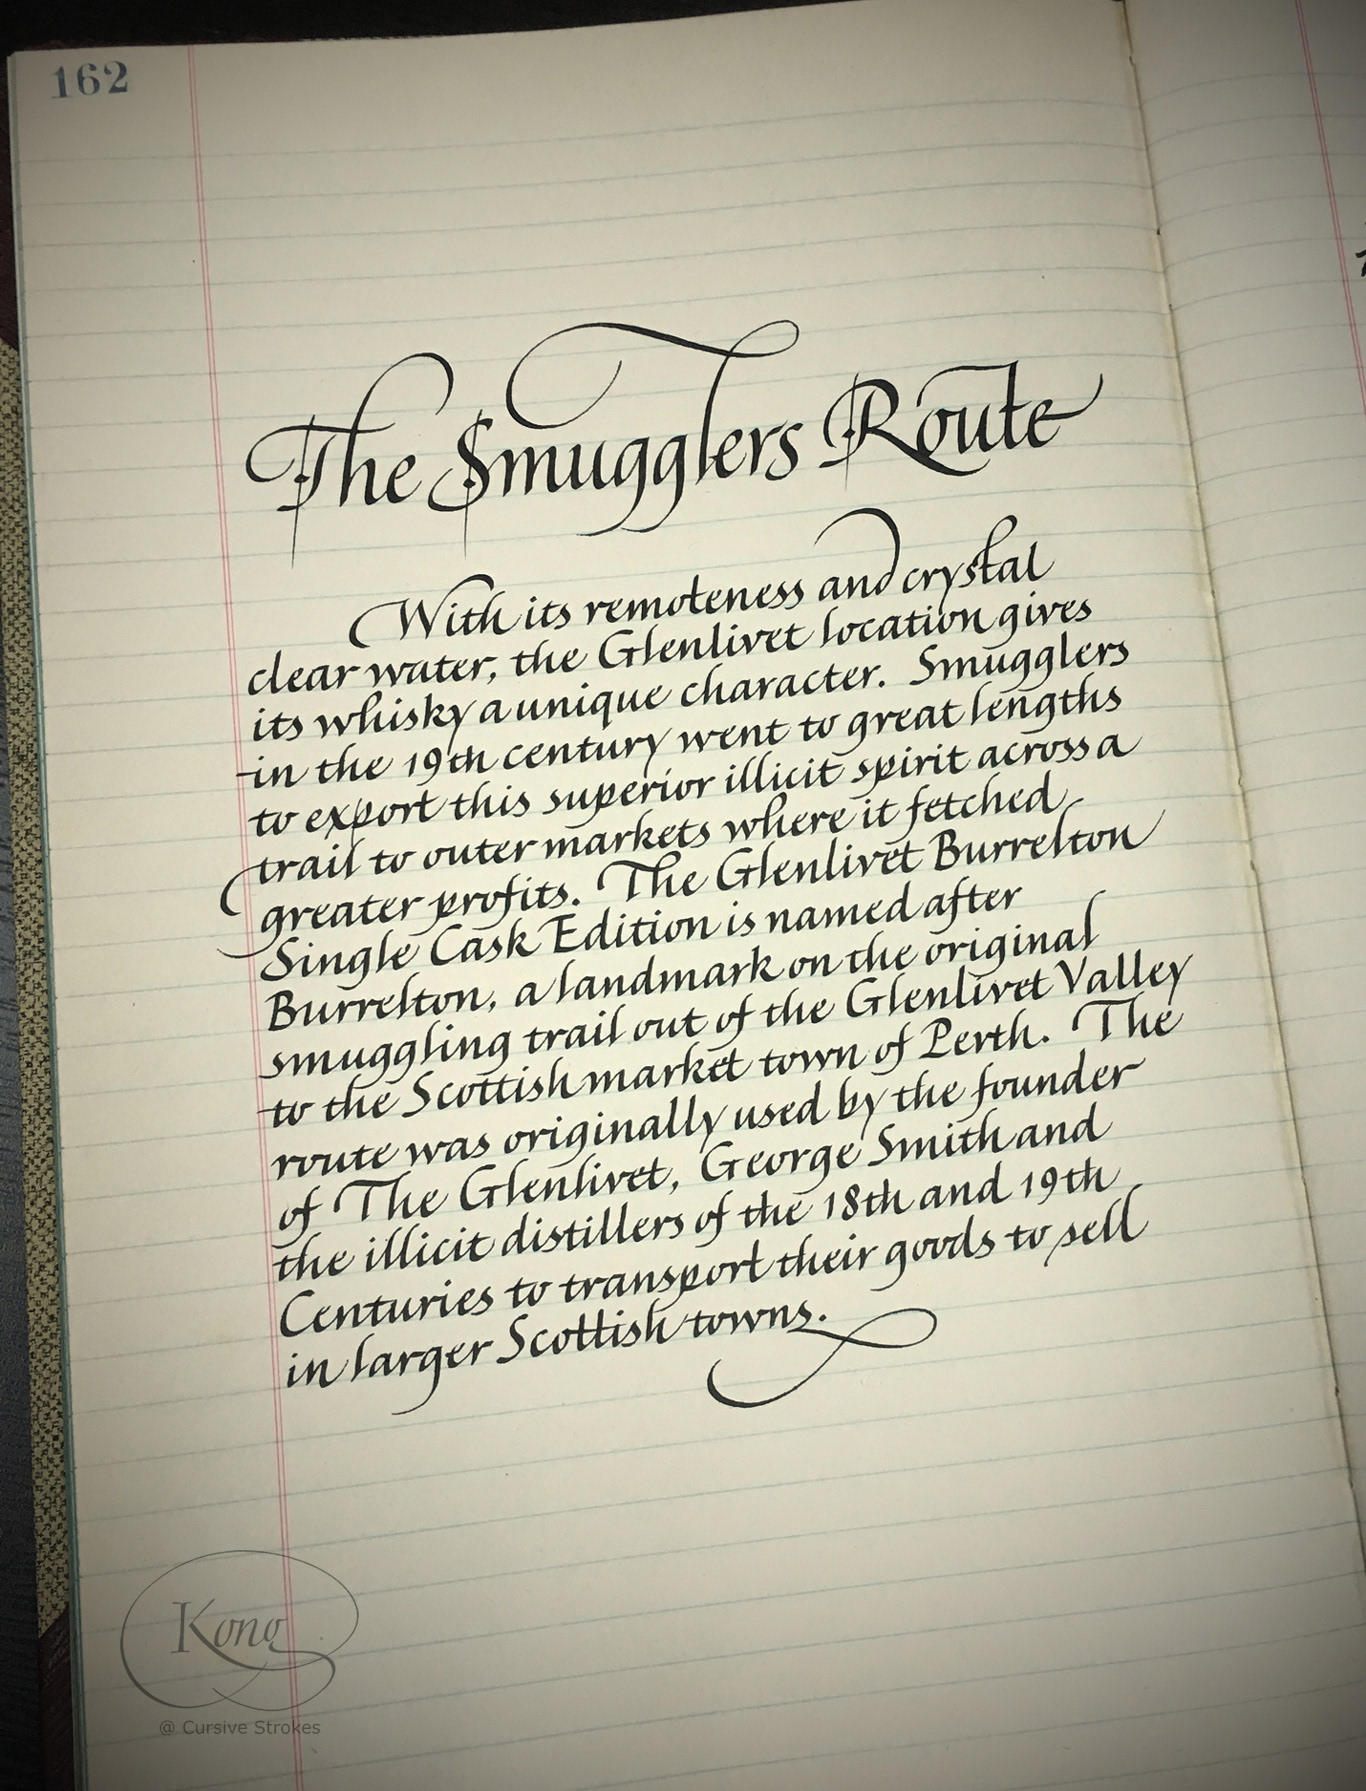 162
The Smugglers Route
With its remoteness and crystal
clear water, the Glenlivet location gives
its whisky a unique character. Smugglers
in the 19th century went to great lengths
to export this superior illicit spirit across a
trail to outer markets where it fetched
greater profits. The Glenlivet Burrelton
Single Cask Edition is named after
Burrelton, a landmark on the original
smuggling trail out of the Glenlivet Valley
to the Scottish market town of Perth. The
route was originally used by the founder
of The Glenlivet, George Smith and
the illicit distillers of the 18th and 19th
Centuries to transport their goods to sell
in larger Scottish towns.
Kong
@ Cursive Strokes